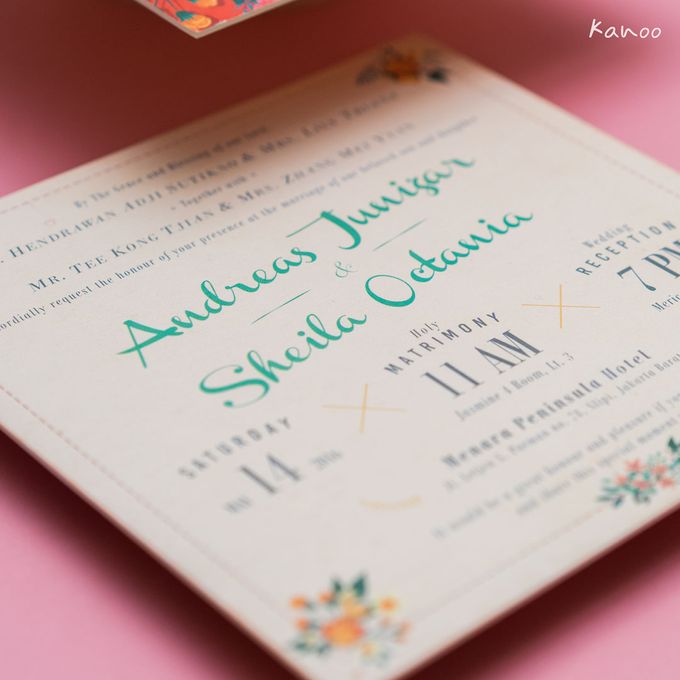 Kanoo
By The Grace and Blessing of our Lord
. Hendrawan Adji Sutikno & Mrs. Lina
- Together with -
Mr. Tee Kong Tjian & Mrs. Zhang Mei Yuan
cordially request the honour of your presence at the marriage of our beloved son and daughter
Andreas Junizar
&
Sheila Octania
SATURDAY
MAY 14 2016
Holy
MATRIMONY
11 AM
Jasmine 4 Room, Lt. 3
Wedding
RECEPTION
7 PM
Meri
Menara Peninsula Hotel
Jl. Letjen S. Parman no. 78, Slipi, Jakarta Barat
It would be a great honour and pleasure if you
and share this special moment